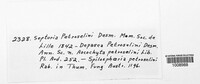 2328. Septoria Petroselini Desm. Mém. Soc. de
Lille 1842 - Depazea Petroselini Desm.
Ann. Sc. n. Ascochyta petroselini Lib.
Pl. Ard. 252. - Spilosphaeria petroselini
Rab. in Thüm. Fung. Austr. 1196.